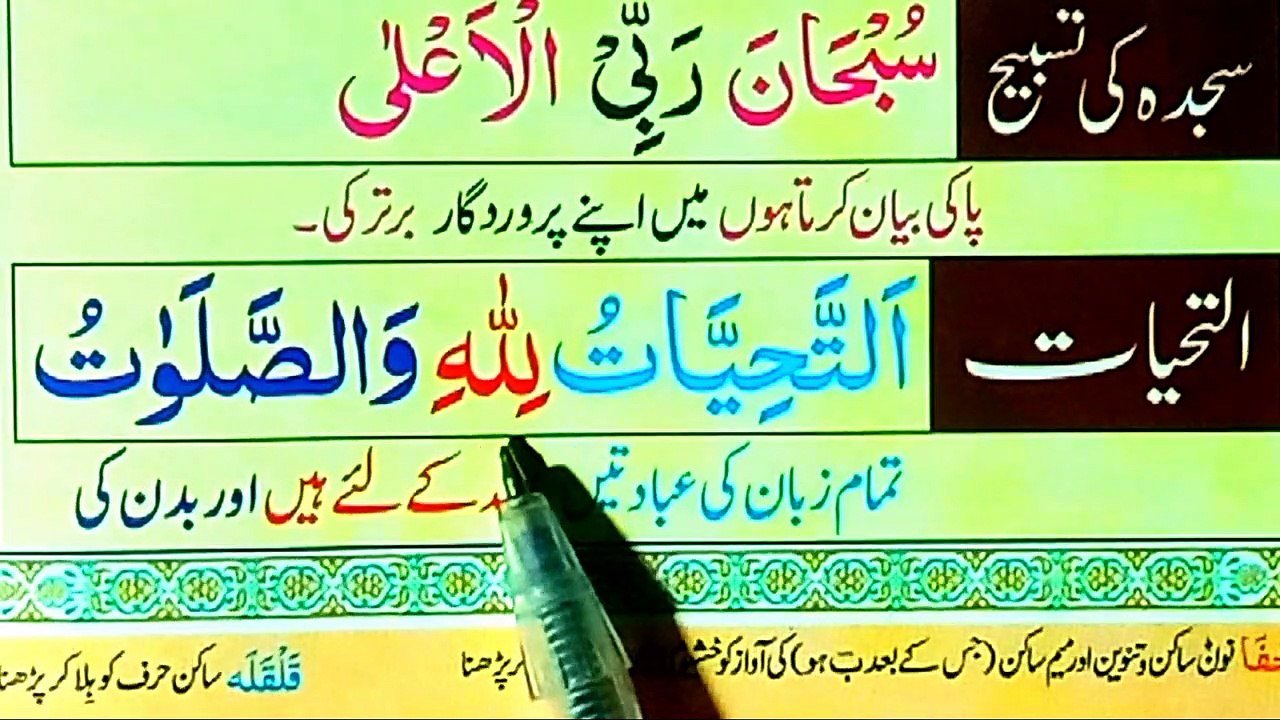 سجدہ کی تسبیح
سُبْحَانَ رَبِّیْ الْاَعْلٰی
پاکی بیان کرتا ہوں میں اپنے پروردگار برتر کی۔
التحیات
اَلتَّحِیَّاتُ لِلّٰهِ وَالصَّلَوٰتُ
تمام زبان کی عبادتیں کے لئے ہیں اور بدن کی
نون ساکن و تنوین اور میم ساکن (جس کے بعد ب ہو) کی آواز کو کر پڑھنا
قَلْقَلَه ساکن حرف کو ہلا کر پڑھنا